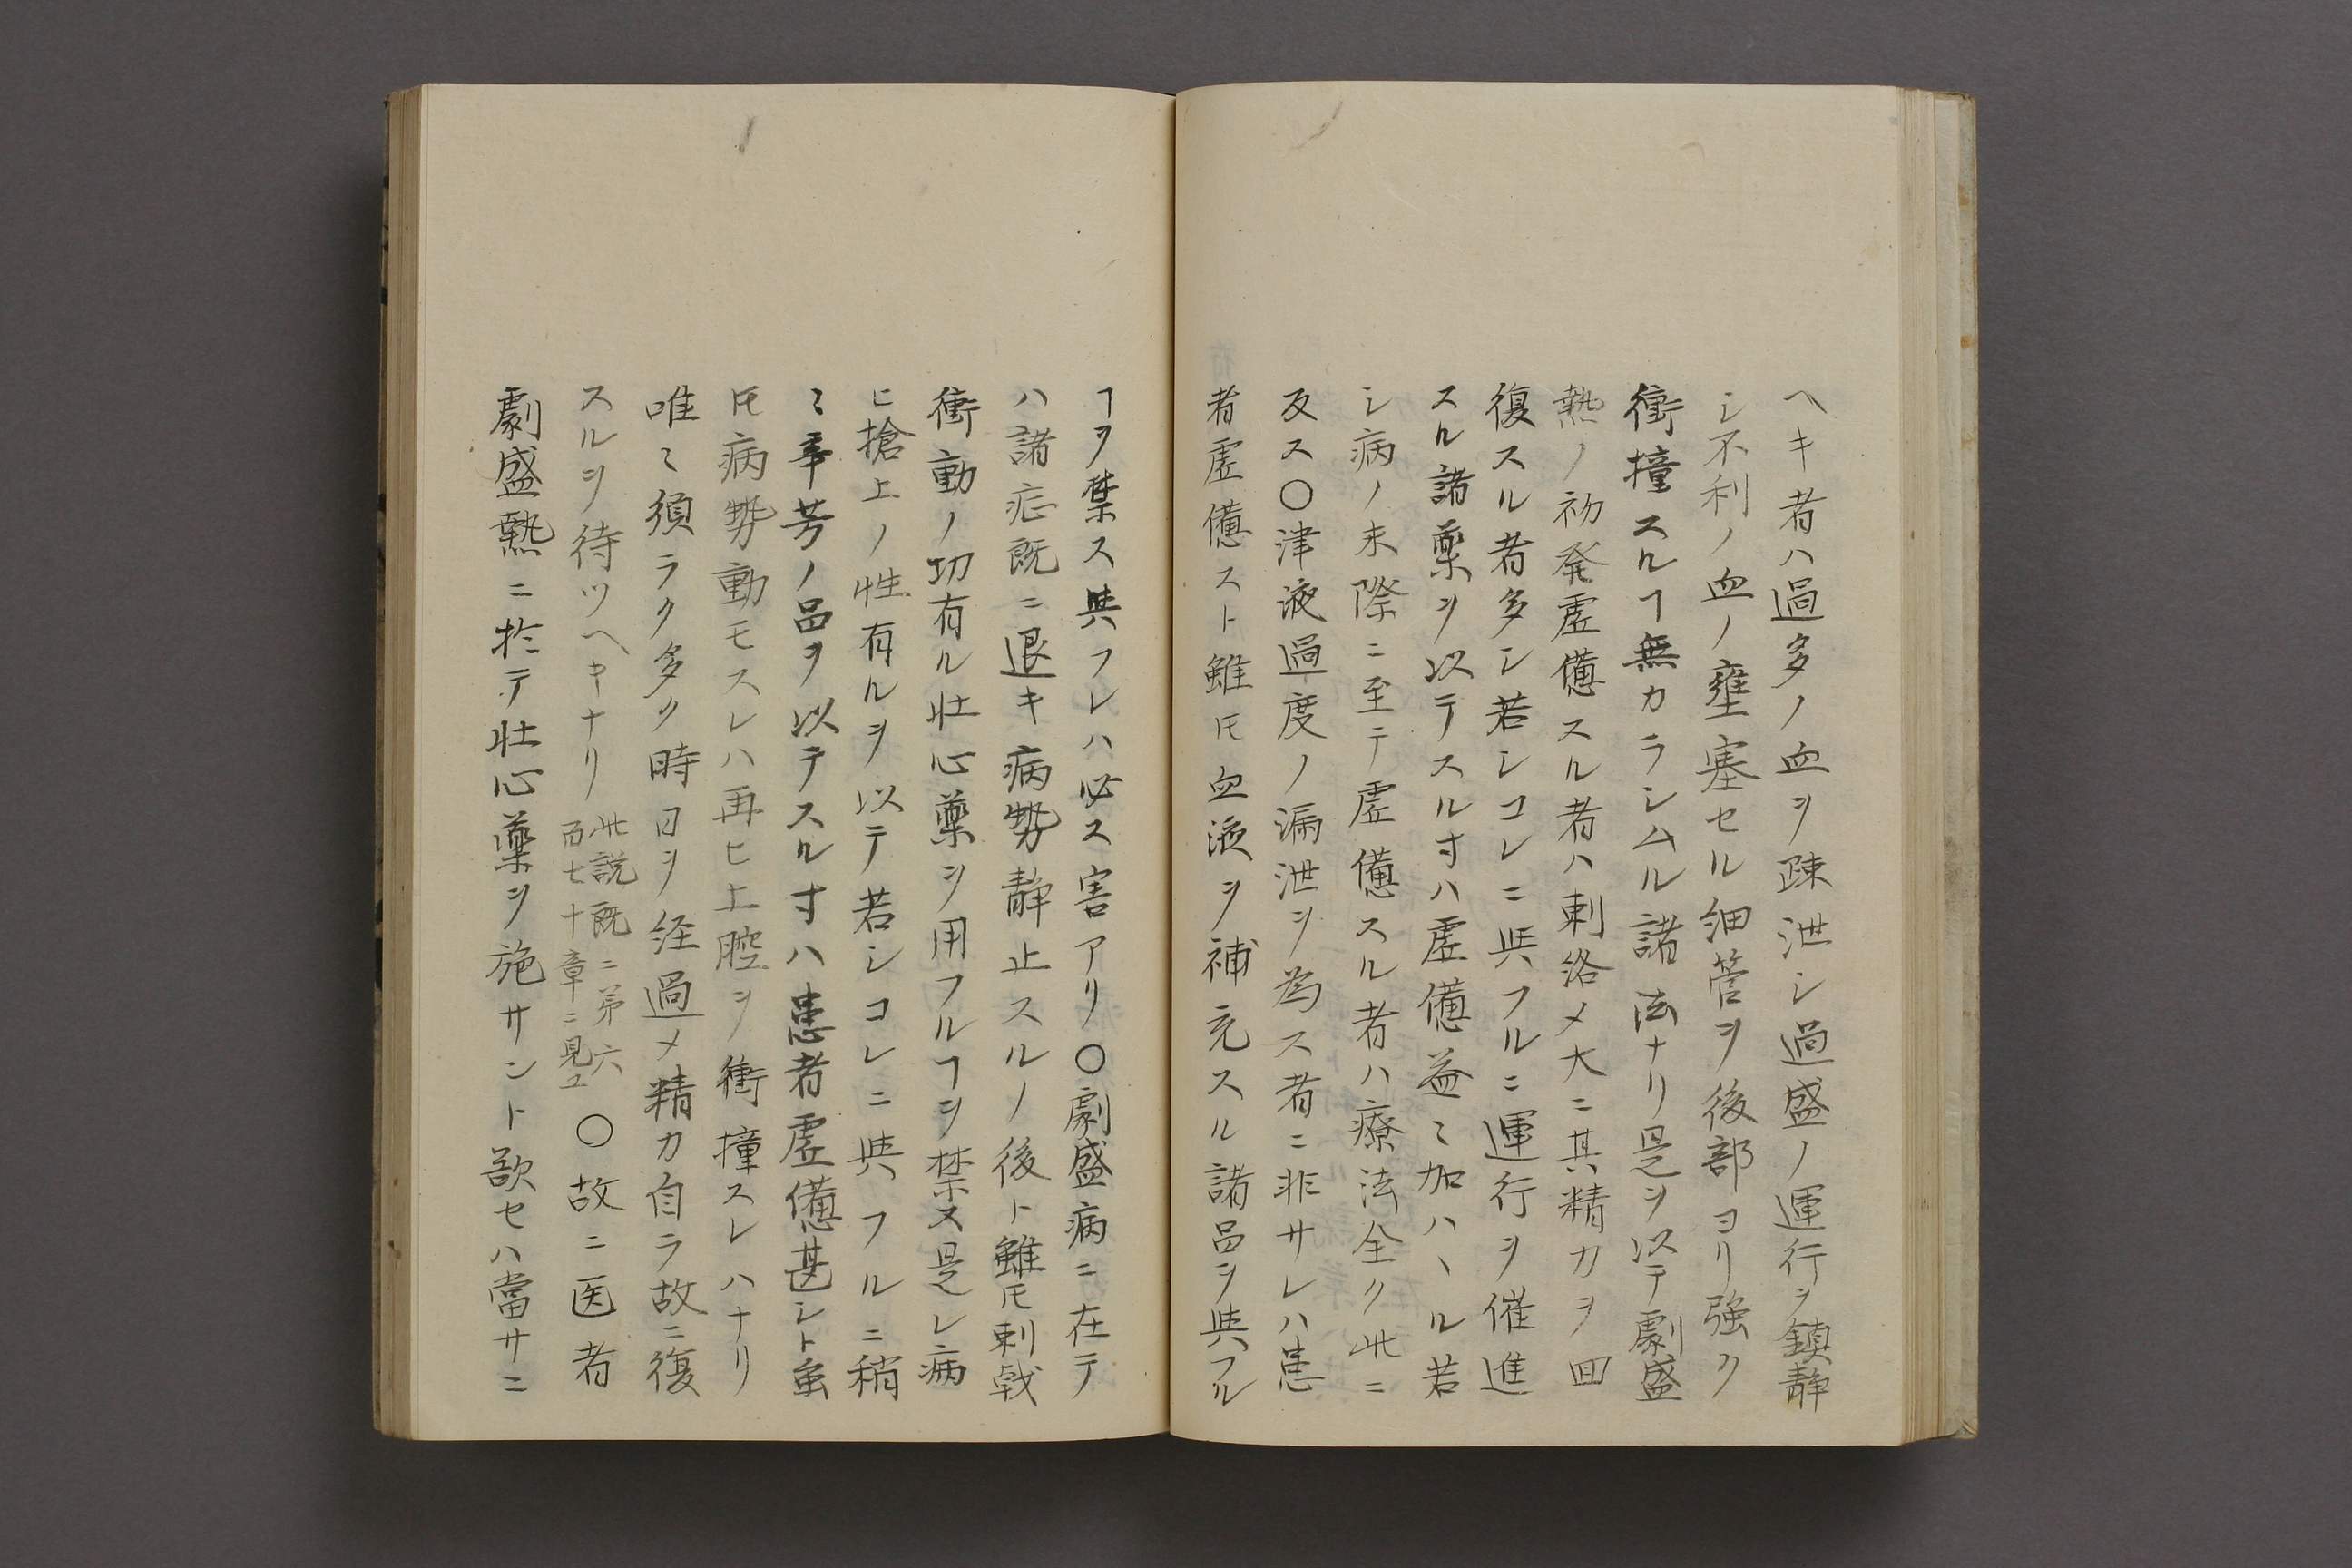 ヘキ者ハ過多ノ血ヲ疎泄シ過盛ノ運行ヲ鎮静
シ不利ノ血ノ壅塞セル細管ヲ後部ヨリ強ク
衝撞スルヿ無カラシムル諸法ナリ是ヲ以テ劇盛
熱ノ初発虚憊スル者ハ刺絡〆大ニ其精力ヲ回
復スル者多シ若シコレニ與フルニ運行ヲ催進
スル諸藥ヲ以テスル寸ハ虚憊益〻加ハヽル若
シ病ノ末際ニ至テ虚憊スル者ハ療法全ク此ニ
反ス〇津液過度ノ漏泄ヲ為ス者ニ非サレハ患
者虚憊スト雖𪜈血液ヲ補充スル諸品ヲ與フル
ヿヲ禁ス與フレハ必ス害アリ〇劇盛病ニ在テ
ハ諸症既ニ退キ病勢静止スルノ後ト雖𪜈刺戟
衝動ノ切有ル壮心藥ヲ用フルヿヲ禁ス是レ病
ヒ搶上ノ性有ルヲ以テ若シコレニ與フルニ稍
〻辛芳ノ品ヲ以テスル寸ハ患者虚憊甚シト虽
𪜈病勢動モスレハ再ヒ上腔ヲ衝撞スレハナリ
唯〻須ラク多ク時日ヲ経過〆精力自ラ故ニ復
スルヲ待ツヘキナリ此説既ニ第六百七十章ニ見ユ〇故ニ医者
劇盛熱ニ於テ壮心藥ヲ施サント欲セハ當サニ